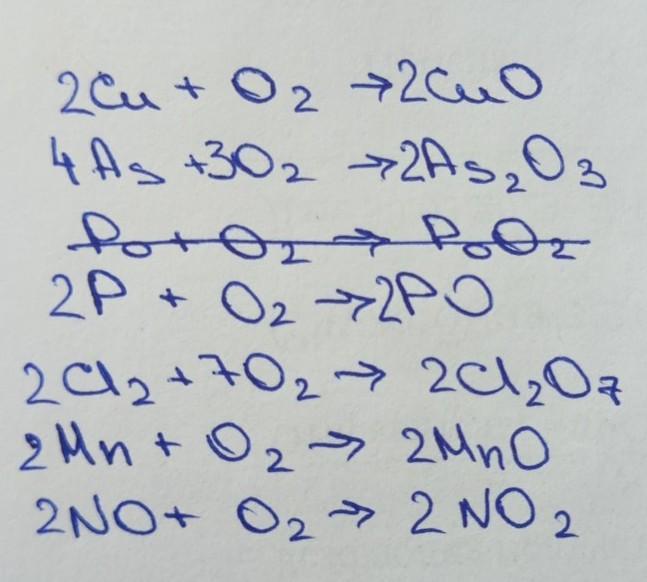 2Cu + O₂ → 2CuO
4As + 3O₂ → 2As₂O₃
Po + O₂ → PoO₂
2P + O₂ → 2PO
2Cl₂ + 7O₂ → 2Cl₂O₇
2Mn + O₂ → 2MnO
2NO + O₂ → 2NO₂